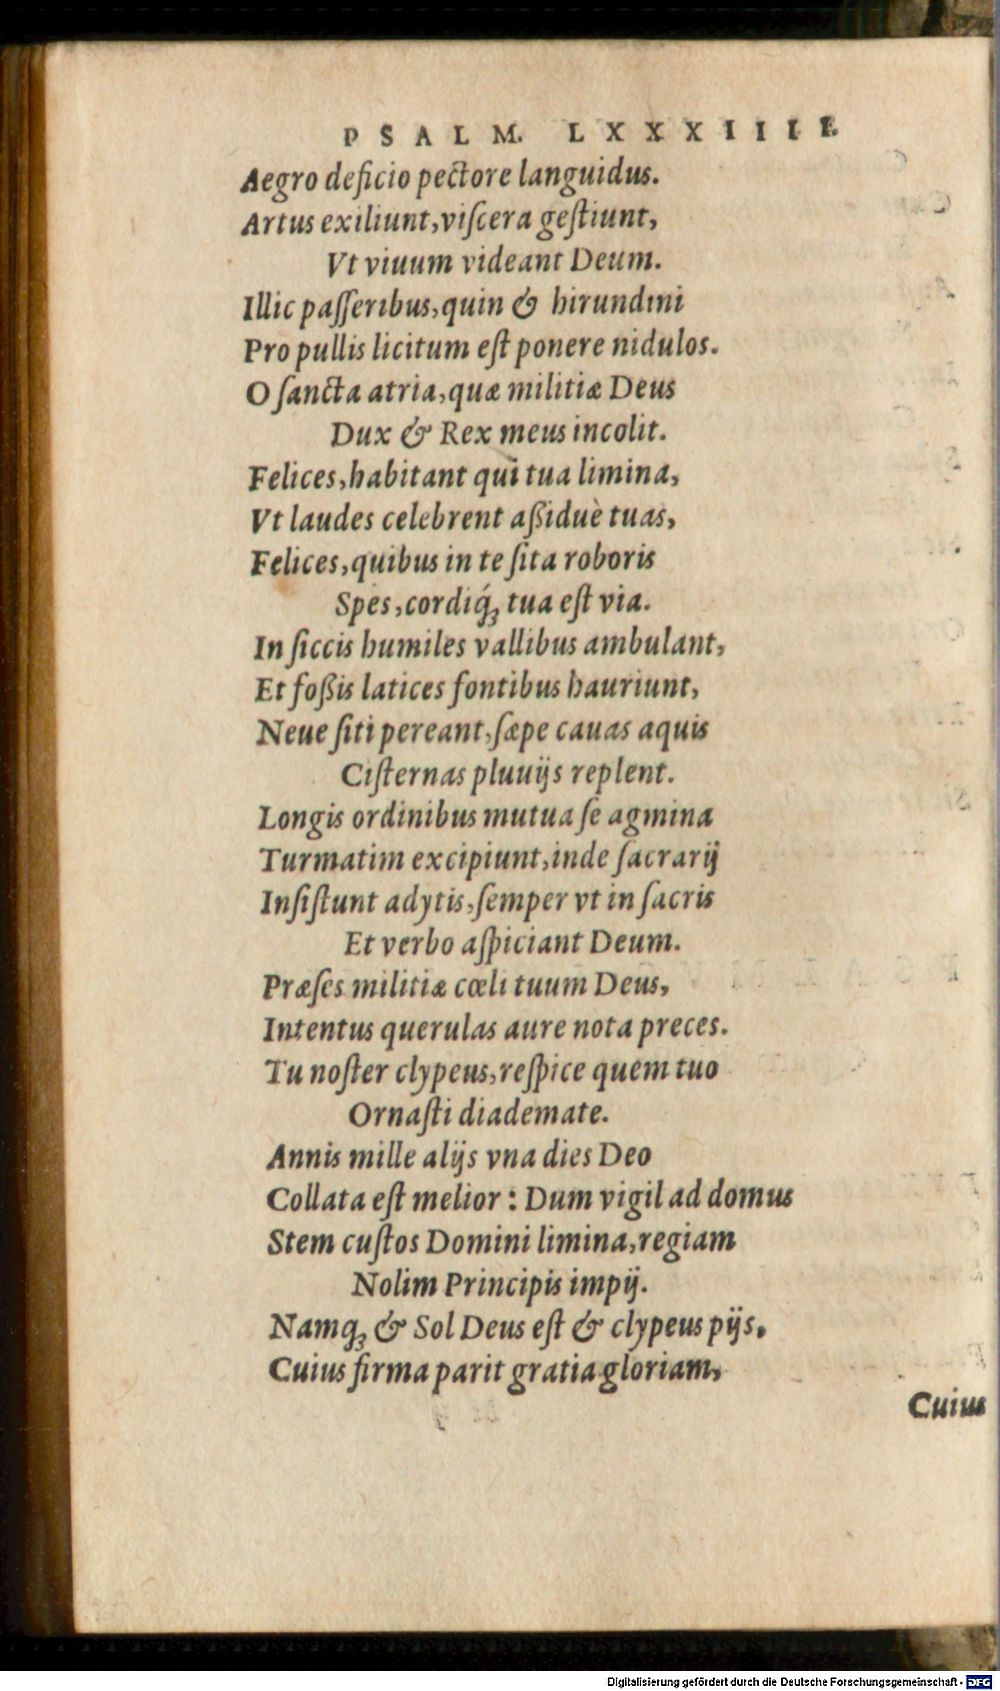 PSALM. LXXXIIII.
Aegro deficio pectore languidus.
Artus exiliunt, viſcera geſtiunt,
Vt viuum videant Deum.
Illic paſſeribus, quin & hirundini
Pro pullis licitum eſt ponere nidulos.
O ſancta atria, quæ militiæ Deus
Dux & Rex meus incolit.
Felices, habitant qui tua limina,
Vt laudes celebrent aßiduè tuas,
Felices, quibus in te ſita roboris
Spes, cordiq́ꝫ tua eſt via.
In ſiccis humiles vallibus ambulant,
Et foßis latices fontibus hauriunt,
Neue ſiti pereant, ſæpe cauas aquis
Ciſternas pluuijs replent.
Longis ordinibus mutua ſe agmina
Turmatim excipiunt, inde ſacrarij
Inſiſtunt adytis, ſemper vt in ſacris
Et verbo aſpiciant Deum.
Præſes militiæ cœli tuum Deus,
Intentus querulas aure nota preces.
Tu noſter clypeus, reſpice quem tuo
Ornaſti diademate.
Annis mille alijs vna dies Deo
Collata eſt melior: Dum vigil ad domus
Stem cuſtos Domini limina, regiam
Nolim Principis impij.
Namqꝫ & Sol Deus eſt & clypeus pijs,
Cuius firma parit gratia gloriam,
Cuius
Digitalisierung gefördert durch die Deutsche Forschungsgemeinschaft - DFG